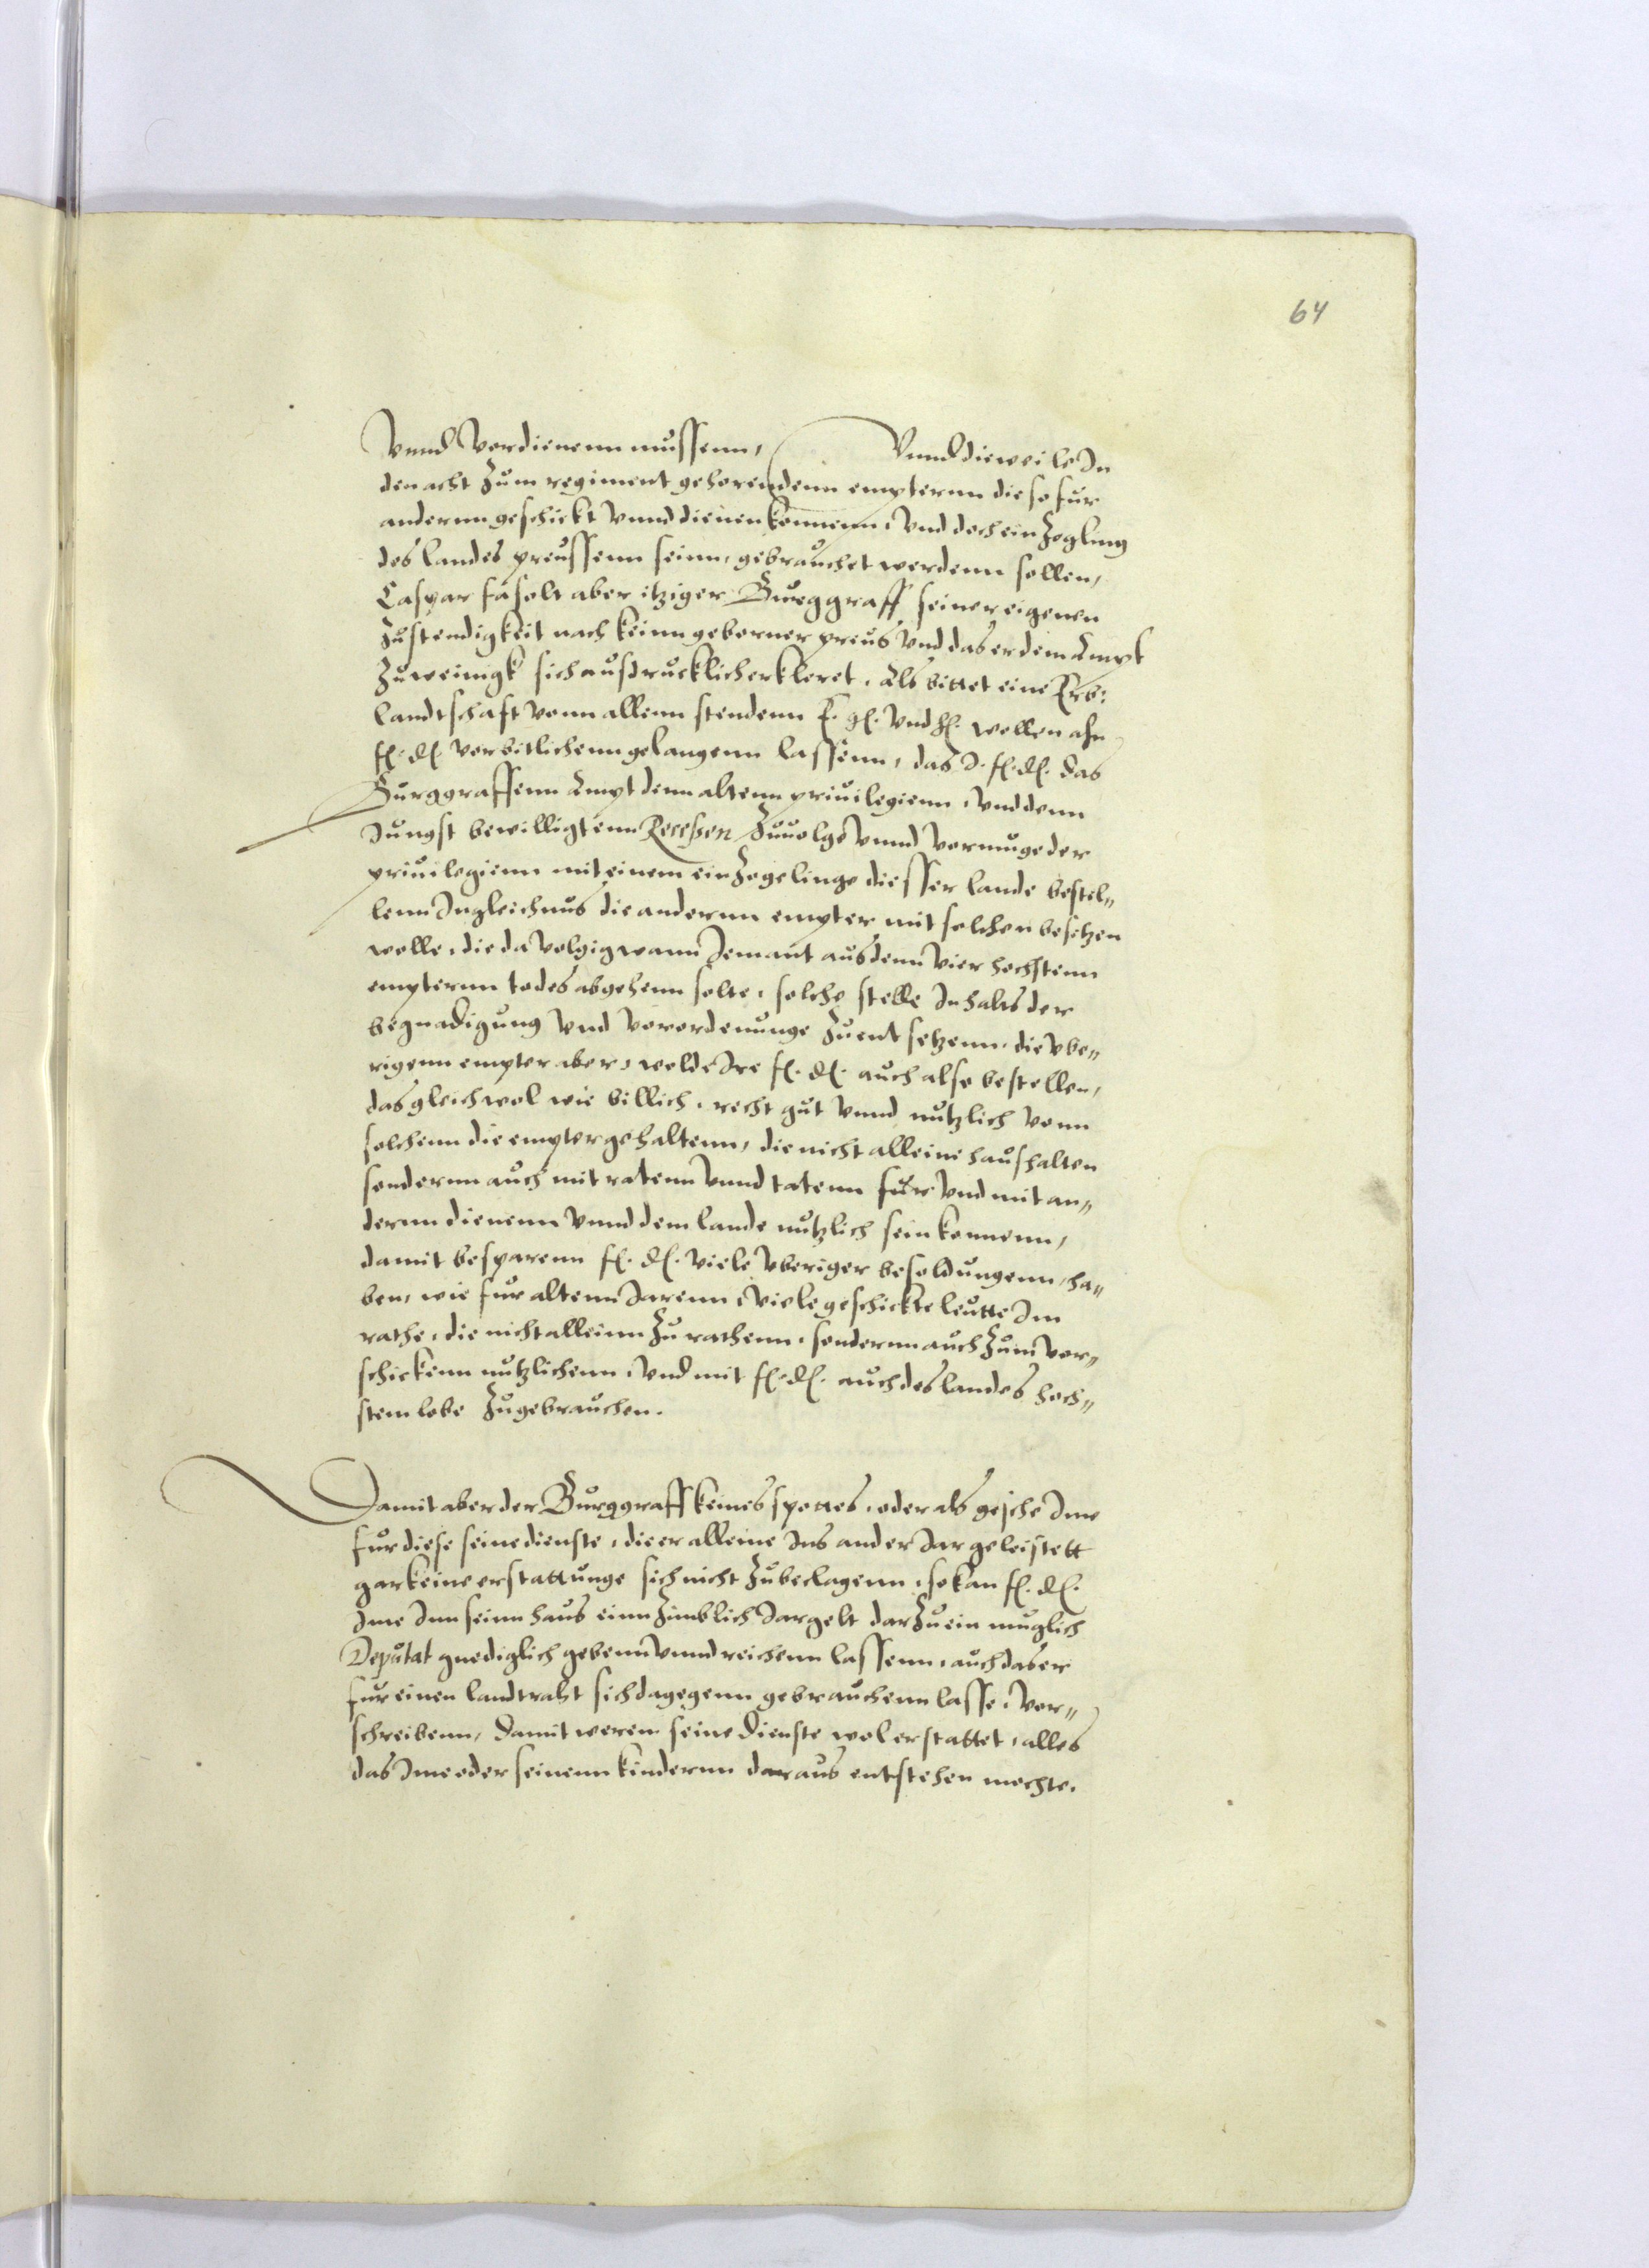 64
Vnnd Vordienenn mussenn, Vnnd dieweile In
den acht Zum regiment gehorendenn empternn diese fur
andernn geschickt Vnnd dienen konnenn, Vnd doch ein Zogling
des landes preussenn seinn, gebrauchet werdenn sollen,
Caspar fasolt aber itziger Burggraff seiner eigenen
Zustendigkeit nach keinn geborner preus Vnd das er dem Ampt
Zu weinigk sich ausdrucklich erkleret. Als bittet eine Erb:
landtschaft vonn allenn stendenn E. g. Vnd h. wollen ahn
f. d. vorbitlichenn gelangenn lassenn, das I. f. d. das
Burggraffenn Ampt denn altenn priuilegienn, Vnd denn
Jungst bewilligtenn Recessen Zuuolge Vnnd Vormuge der
priuilegienn mit einem ein Zogelinge diesser lande bestel„
lenn Ingleichnus die andernn empter mit solchen besetzen
wolle, die da Volgig wann Iemant aus denn Vier hochstenn
empternn todes abgehenn solte, solche stelle Inhalts der
begnadigung Vnd Vorordenunge Zuentsetzenn, die Vbe„
rigenn empter aber, wolde Ire f. d. auch also bestellen,
das gleichwol wie billich, recht gut Vnnd nutzlich vonn
solchenn die empter gehaltenn, die nicht alleine haushalten
sondernn auch mit ratenn Vnnd tatenn fur Vnd mit an„
dernn dienenn Vnnd dem lande nutzlich sein konnenn,
damit besparenn f. d. viele Vberiger besoldungenn, ha„
ben, wie fur altenn Iarenn, Viele geschickte leutte Im
rathe, die nicht alleinn Zu rathenn, sondernn auch Zum vor„
schickenn nutzlichenn, Vnd mit f. d. auch des landes hoch„
stem lobe Zugebrauchen.
Damit aber der Burggraff keines spottes, oder als geschehe Ime
fur diese seine dienste, die er alleine Ins ander Iar geleistett
gar keine erstattunge sich nicht Zubeclagenn, so kan f. d.
Ime Inn seinn haus einn Zimblich Iargelt darZu ein muglich
Deputat gnediglich gebenn Vnnd reichenn lassenn, auch das er
fur einen landtraht sich dagegenn gebrauchenn lasse, Vor„
schreibenn, damit weren seine dienste wol erstattet, alles
das Ime oder seinenn kindernn daraus entstehen mochte.